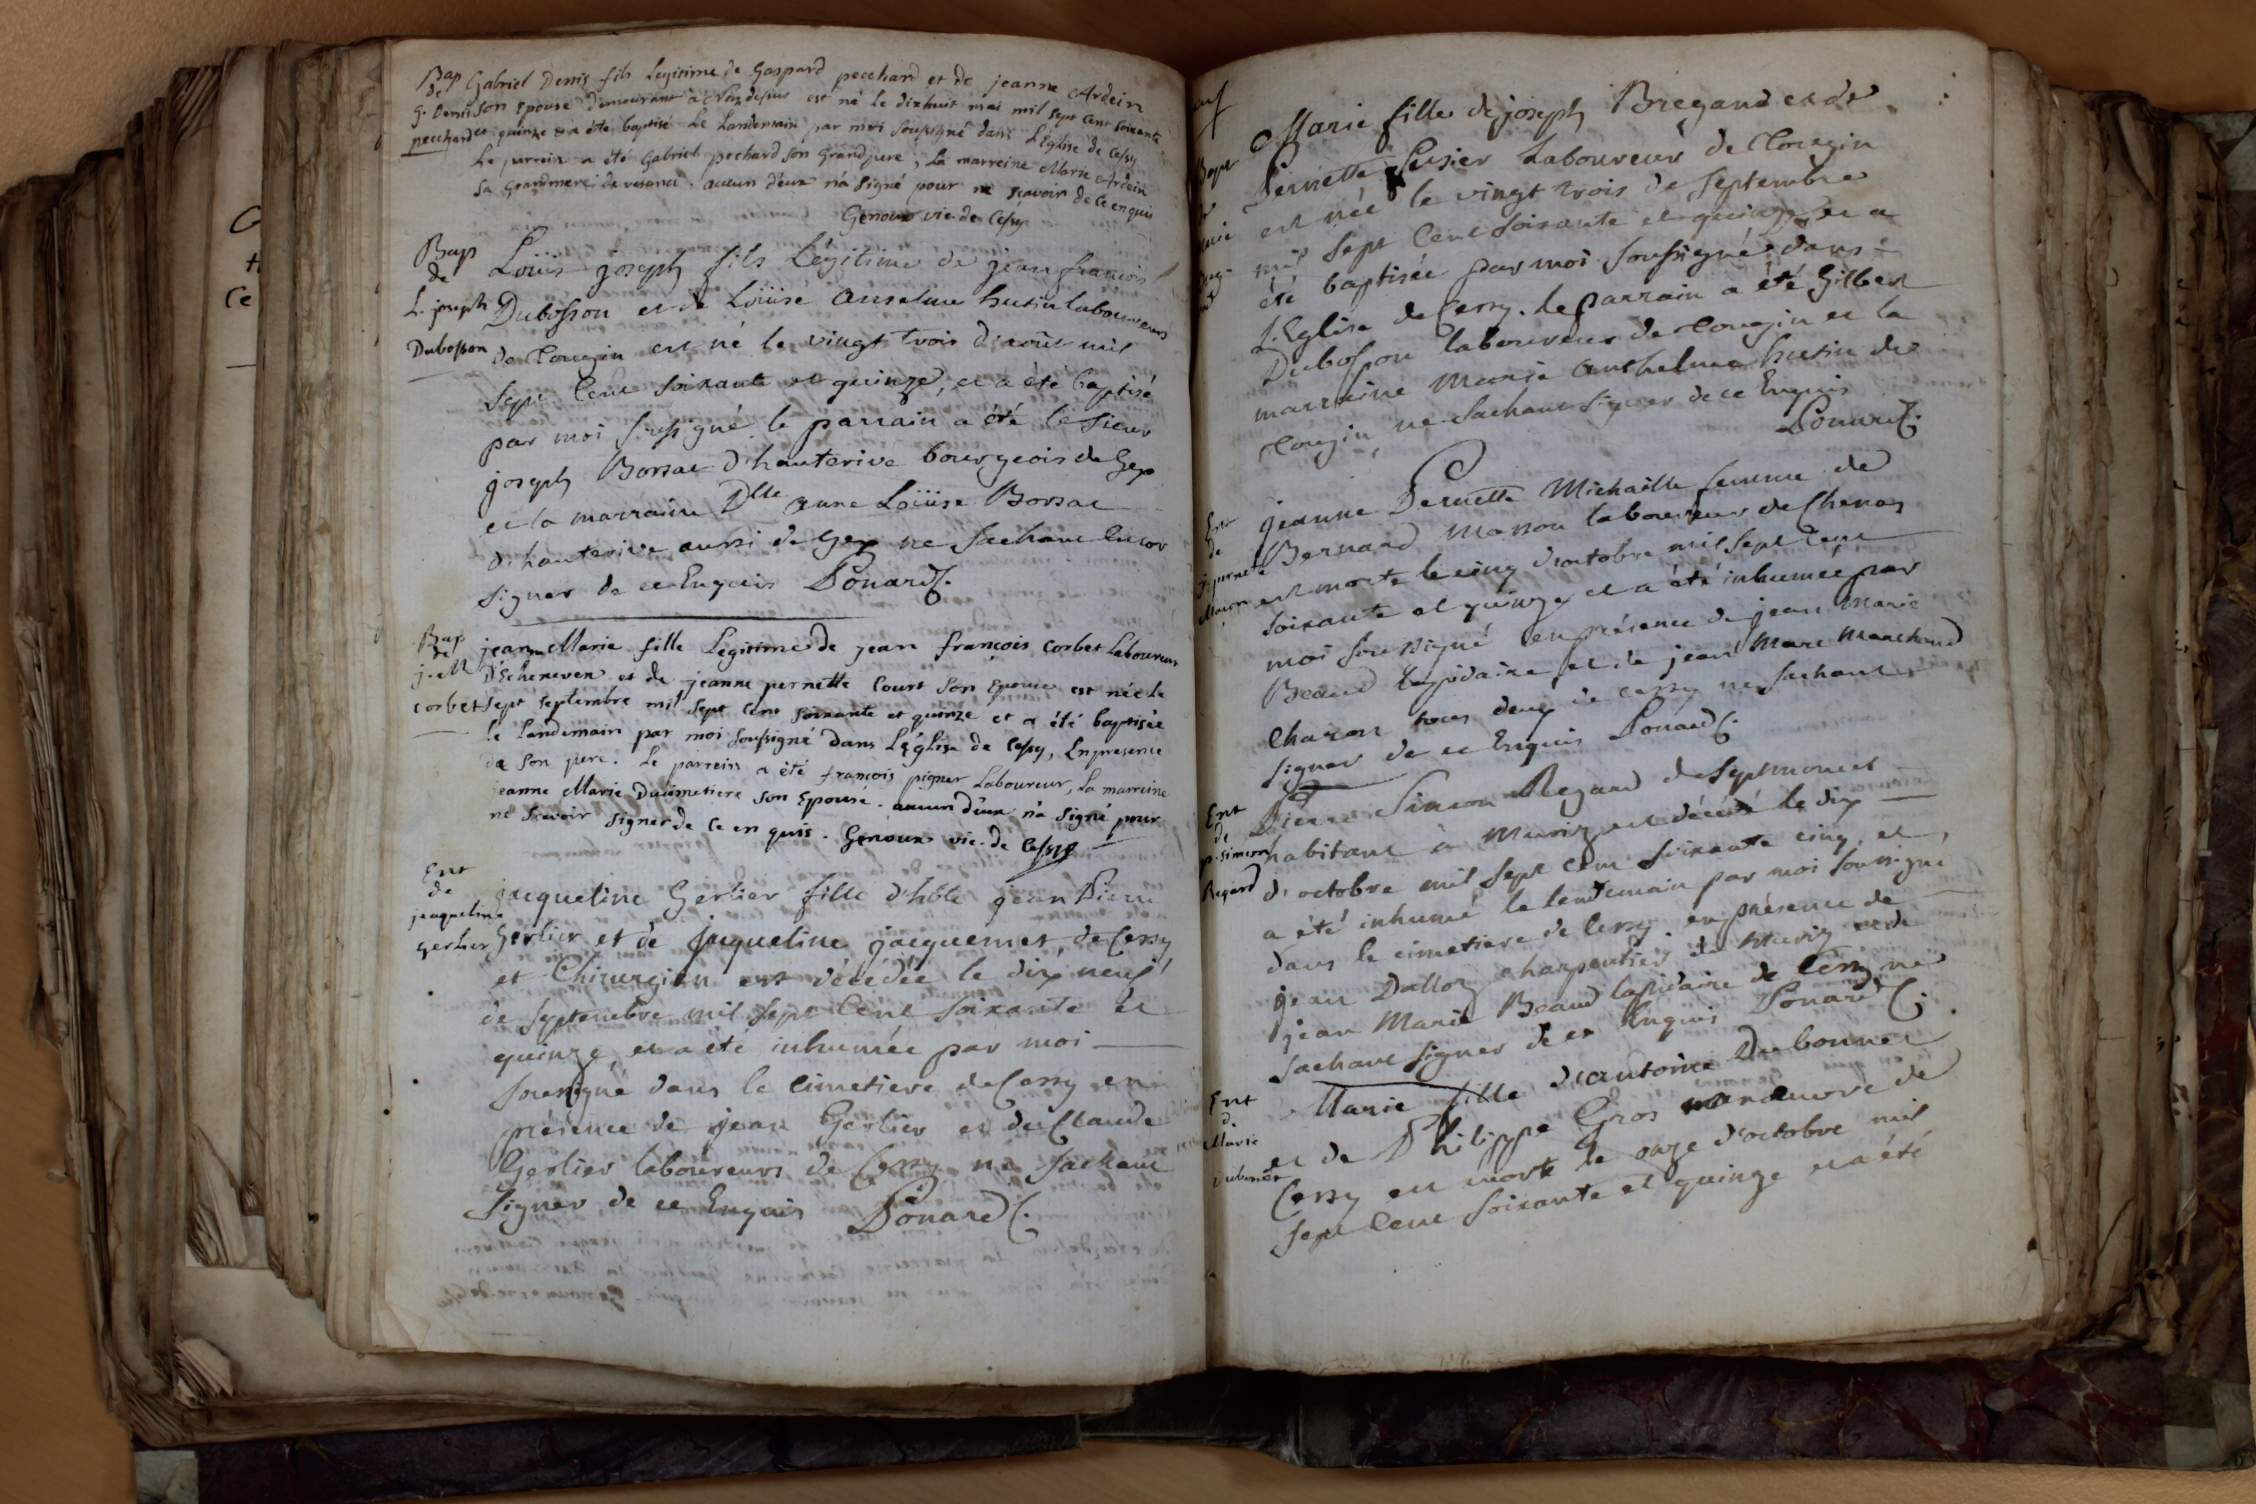 Bap Gabriel Denis fils Legitime de Gaspard pecchard et de jeanne Ardein
de
G. Denis son Epouse demeurant à est né le dixhuit mai mil sept cent soixante
pecchard et quinze et a été baptisé le landemain par moi soussigné dans L'Eglise de Cessy
Le parrein a été Gabriel pechard son Grandpere, La marreine Marie Ardein
sa Grandmere de vesanci. aucun d'eux n'a signé pour ne sçavoir de ce enquis
Genoux vic. de Cessy
Bap
de
L. joseph
Dubosson
Loüis joseph fils Légitime de jean françois
Dubosson et de Loüise anselme hutin laboureurs
de Tougin est né le vingt trois d'aoüt mil
sept Cent soixante et quinze, et a été baptisé
par moi soussigné le parrain a été le sieur
joseph Borsat d'hauterive bourgeois de Gex
et la marraine Dlle anne Loüise Borsat
d'hauterive aussi de Gex ne sachant
signer de ce Enquis Ponard C.
Bap
de
j. M
corbet
jeanne Marie fille Légitime de jean françois corbet Laboureur
D'Echeneven et de jeanne pernette Court son Epouse est née le
sept septembre mil sept cent soixante et quinze et a été baptisée
le landemain par moi soussigné dans L'Eglise de Cessy, En presence
de son pere. Le parrein a été françois pigner Laboureur, La marreine
jeanne Marie Ducimetiere son Epouse. aucun d'eux n'a signé pour
ne sçavoir signer de ce en quis. Genoux vic. de Cessy
Ent
de
jeaqueline
Gerlier
jacqueline Gerlier fille d'hble jean Pierre
Gerlier et de jacqueline jacquemet, de Cessy
et Chirurgien est décédée le dix neuf
de septembre mil sept Cent soixante et
quinze, et a été inhumée par moi
soussigné dans le cimetiere de Cessy en
présence de jean Gerlier et de Claude
Gerlier laboureurs de Cessy ne sachant
signer de ce Enquis Ponard C.
Marie fille de joseph Bregand et de
Pernette laboureur de Tougin
est née le vingt trois de septembre
mil sept Cent soixante et quinze et a
été baptisée par moi soussigné dans
L'Eglise de Cessy. le parrain a été Gilbert
Dubosson laboureur de Tougin et la
marraine Marie anthelme hutin de
Tougin ne sachant signer de ce Enquis
Ponard C.
Ent
de
j. pernete
Masson
jeanne Pernette Michaille femme de
Bernard Masson laboureur de Chenaz
est morte le cinq d'octobre mil sept Cent
soixante et quinze et a été inhumée par
moi soussigné en présence de jean Marie
Beaud lapidaire, et de jean Marc Marchand
Charon tous deux de Cessy ne sachant
signer de ce Enquis Ponard C.
Ent
de
p. simeon
Regard
Pierre Simeon Regard de Septmoncet
habitant à est décédé le dix
d'octobre mil sept cent soixante cinq et
a été inhumé le lendemain par moi soussigné
dans le cimetiere de Cessy. en présence de
jean Dalloz charpentier de et de
jean Marie Beaud lapidaire de Cessy ne
sachant signer de ce Enquis Ponard C.
Ent
d.
Marie
Dubonet
Marie fille d'antoine Dubonnet
et de Philippe Gros manœuvre de
Cessy est morte le onze d'octobre mil
sept Cent soixante et quinze et a été